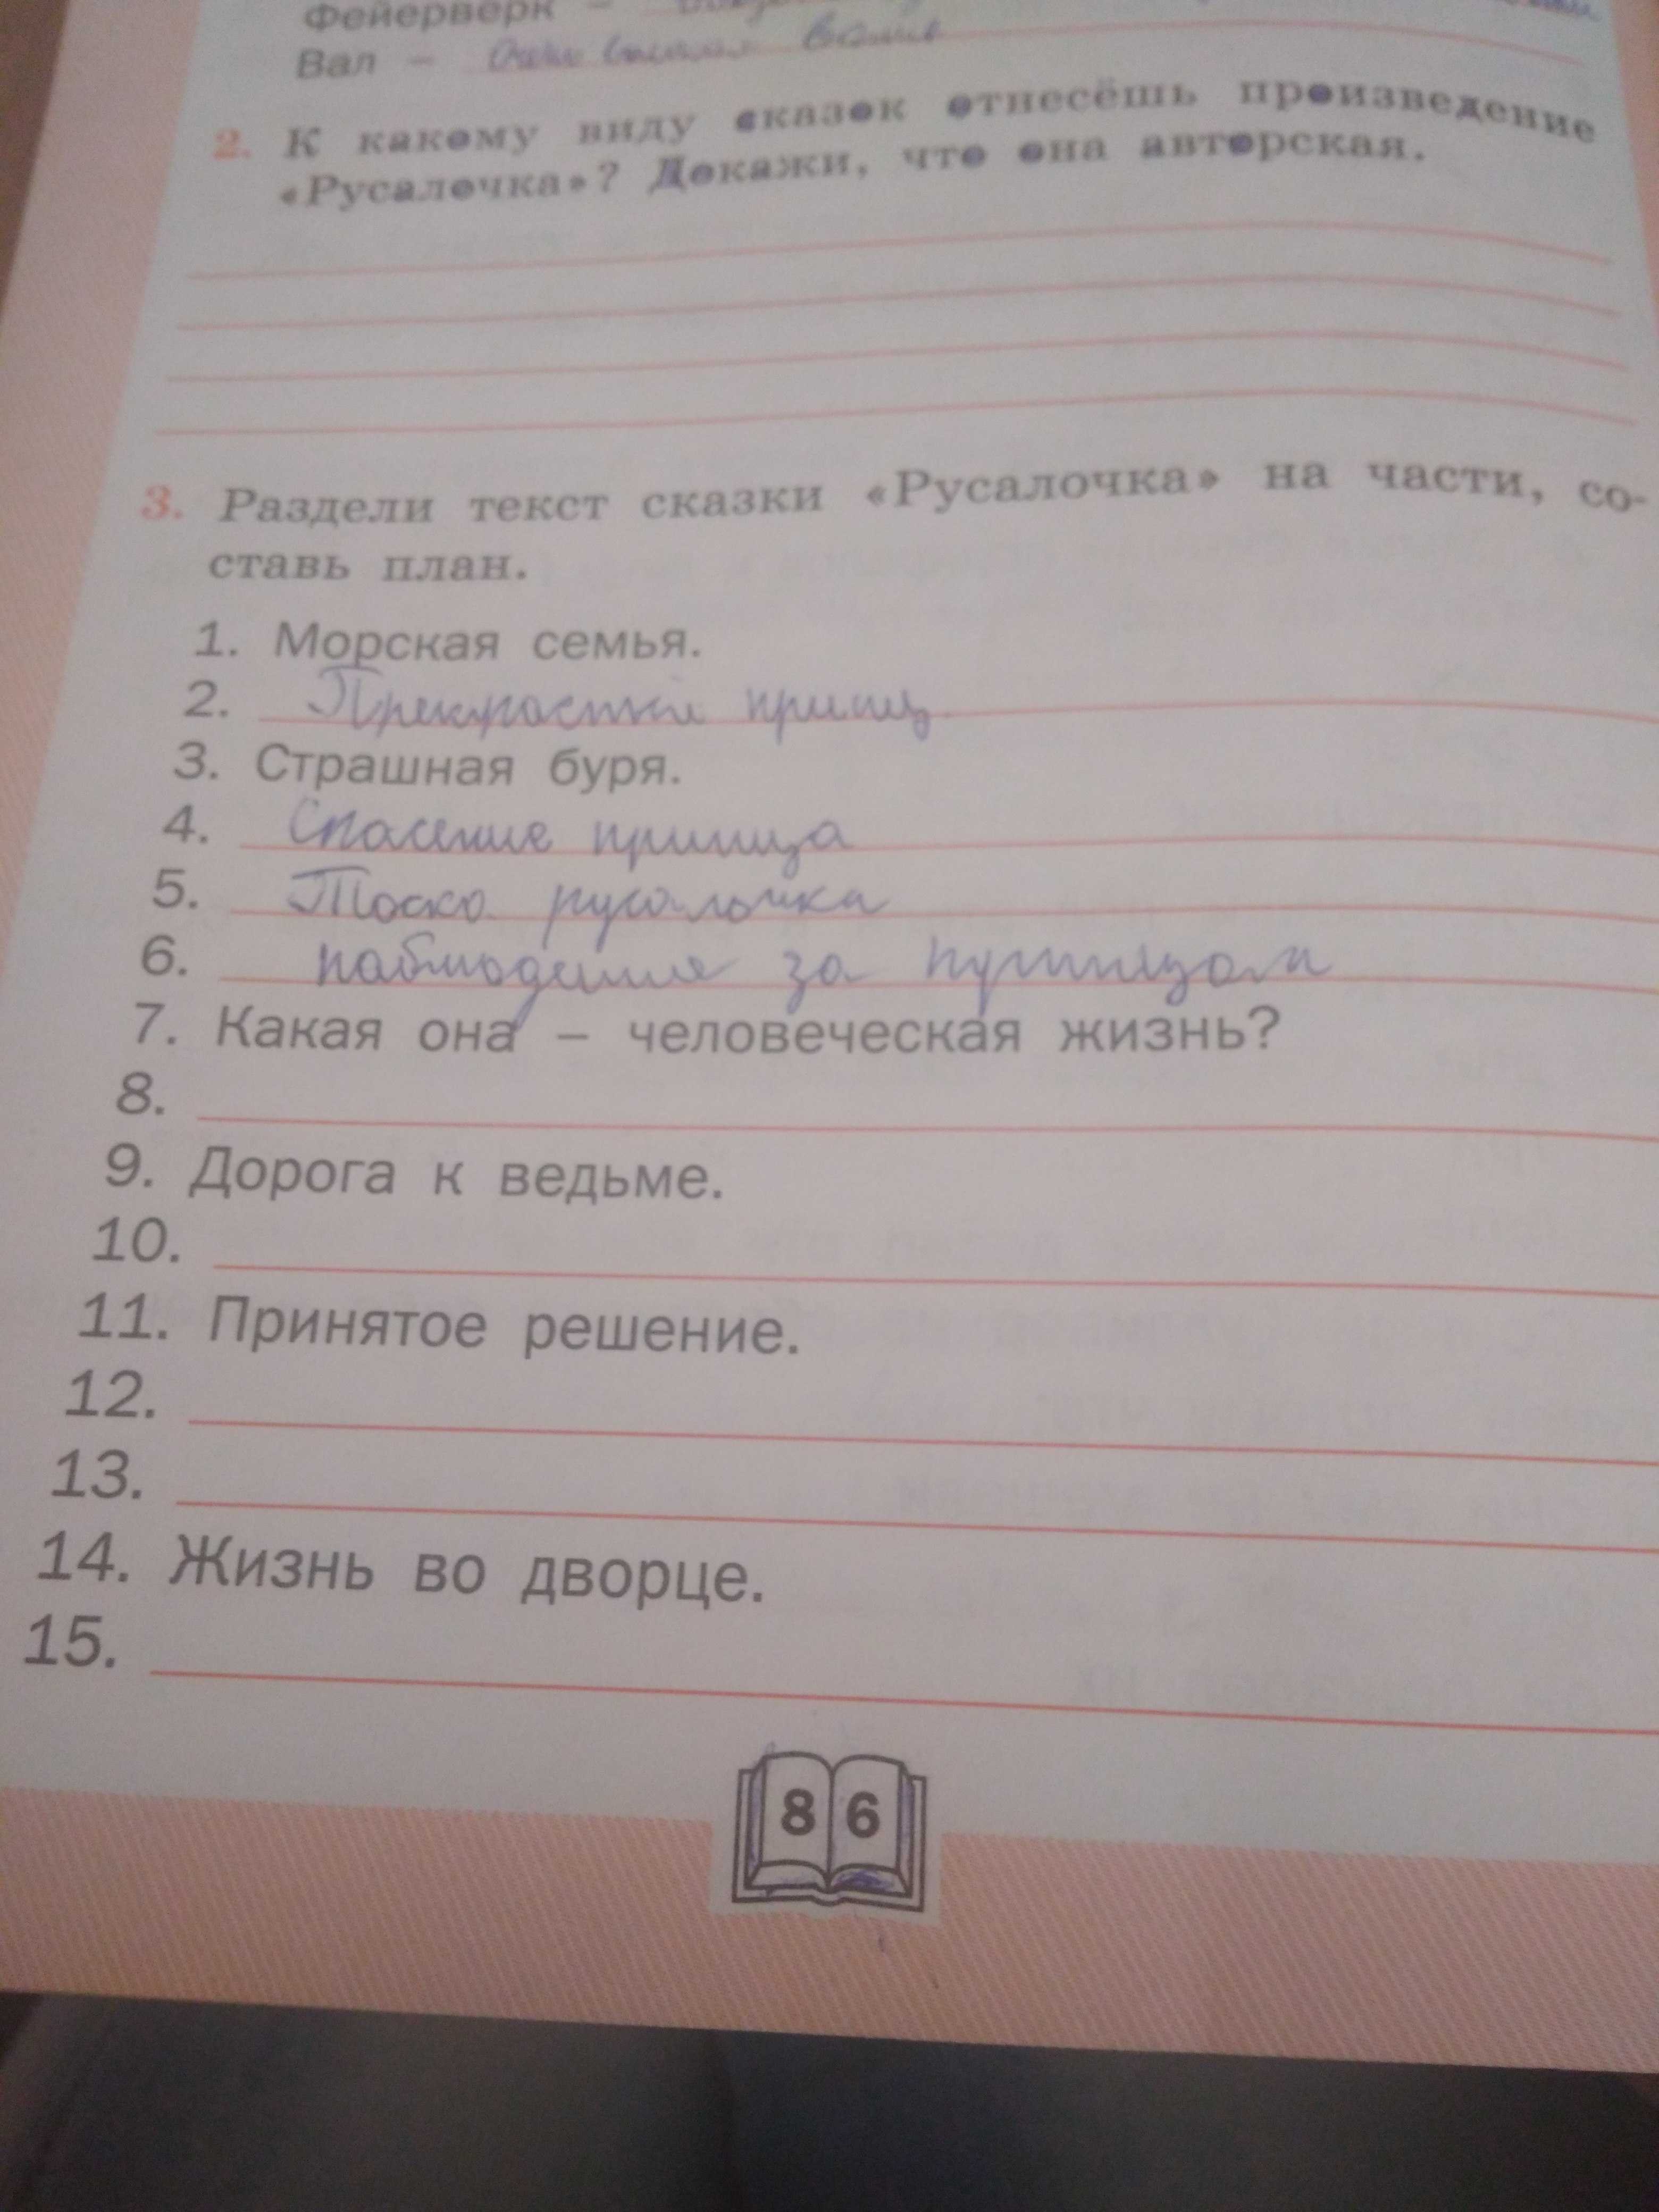 Фейерверк –
Вал –
2. К какому виду сказок отнесёшь произведение
«Русалочка»? Докажи, что она авторская.
3. Раздели текст сказки «Русалочка» на части, со-
ставь план.
1. Морская семья.
2. принц
3. Страшная буря.
4. Спасение принца
5. Тоска русалочки
6. наблюдение за
7. Какая она – человеческая жизнь?
8.
9. Дорога к ведьме.
10.
11. Принятое решение.
12.
13.
14. Жизнь во дворце.
15.
86